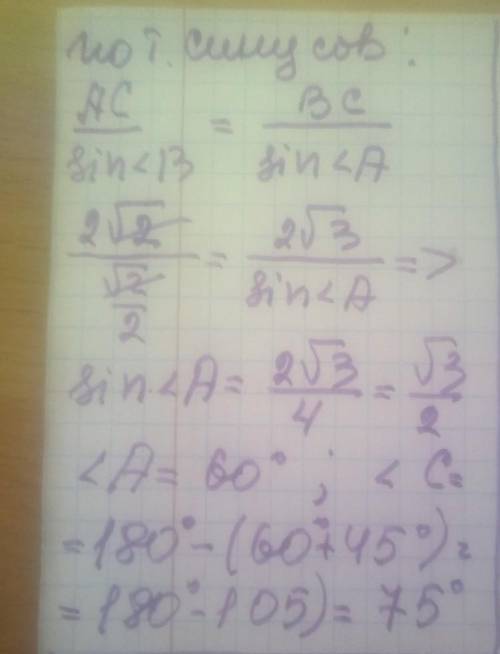 по т. синусов:
AC/sin<B = BC/sin<A
2√2/(√2/2) = 2√3/sin<A =>
sin<A = 2√3/4 = √3/2
<A = 60° ; < C =
= 180° - (60° + 45°) =
= 180° - 105) = 75°